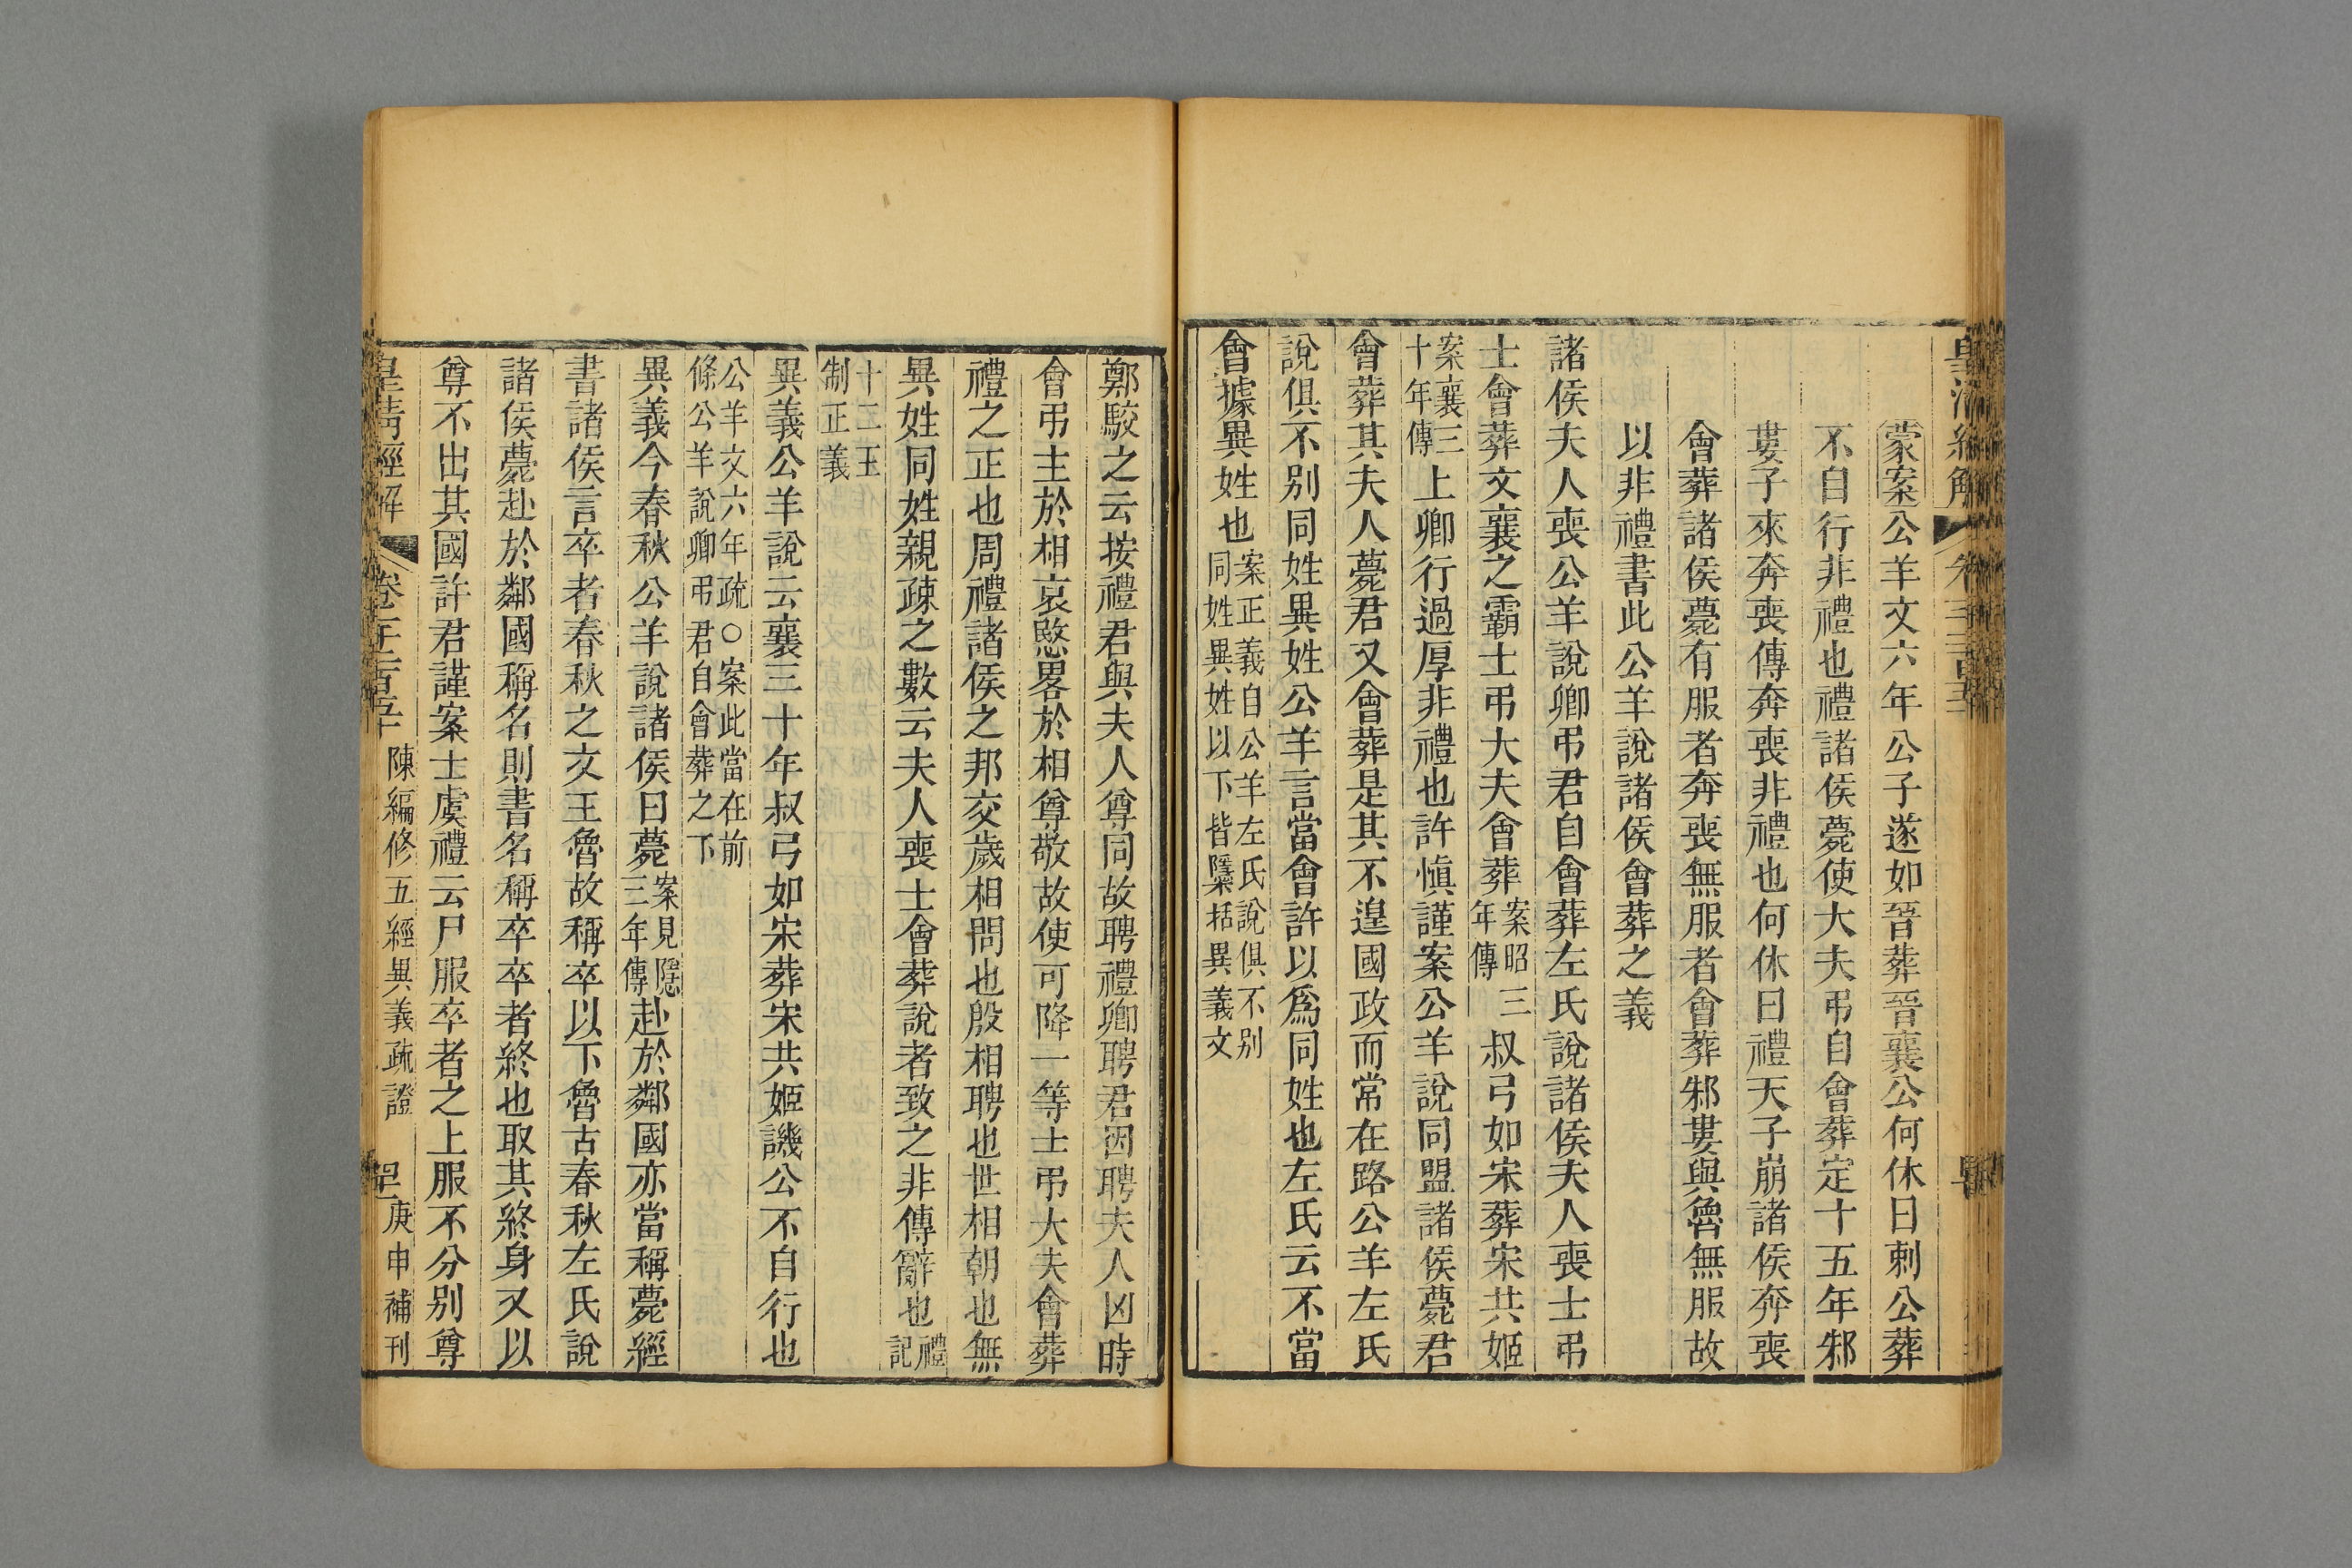 皇清經解
蒙案公羊文六年公子遂如晉葬晉襄公何休曰刺公葬
不自行非禮也禮諸侯薨使大夫弔自會葬定十五年邾
婁子來奔喪傳奔喪非禮也何休曰禮天子崩諸侯奔喪
會葬諸侯薨有服者奔喪無服者會葬邾婁與魯無服故
以非禮書此公羊說諸侯會葬之義
諸侯夫人喪公羊說卿弔君自會葬左氏說諸侯夫人喪士弔
士會葬文襄之霸士弔大夫會葬案昭三年傳叔弓如宋葬宋共姬
案襄三十年傳上卿行過厚非禮也許慎謹案公羊說同盟諸侯薨君
會葬其夫人薨君又會葬是其不遑國政而常在路公羊左氏
說俱不別同姓異姓公羊言當會許以爲同姓也左氏云不當
會據異姓也案正義自公羊左氏說俱不別同姓異姓以下皆櫽括異義文
鄭駮之云按禮君與夫人尊同故聘禮卿聘君因聘夫人凶時
會弔主於相哀愍畧於相尊敬故使可降一等士弔大夫會葬
禮之正也周禮諸侯之邦交歲相問也殷相聘也世相朝也無
異姓同姓親疎之數云夫人喪士會葬說者致之非傳辭也禮記
十二王制正義
異義公羊說云襄三十年叔弓如宋葬宋共姬譏公不自行也
公羊文六年疏○案此當在前條公羊說卿弔君自會葬之下
異義今春秋公羊說諸侯曰薨案見隱三年傳赴於鄰國亦當稱薨經
書諸侯言卒者春秋之文王魯故稱卒以下魯古春秋左氏說
諸侯薨赴於鄰國稱名則書名稱卒卒者終也取其終身又以
尊不出其國許君謹案士虞禮云尸服卒者之上服不分別尊
皇清經解 陳編修五經異義疏證 庚申補刊